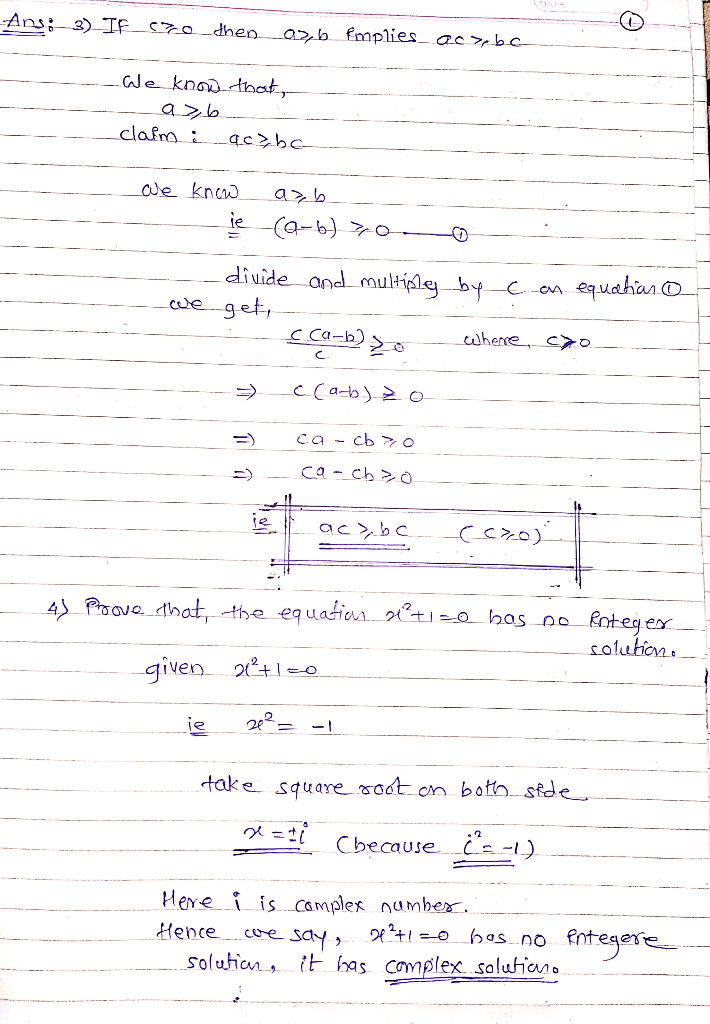 ①
Ans: 3) If c≥0 then a≥b implies ac≥bc
We know that,
a≥b
claim : ac≥bc
We know a≥b
ie (a-b) ≥0 — ①
divide and multipley by c on equation ①
we get,
c(a-b)/c ≥0 where, c>0
⇒ c(a-b) ≥ 0
⇒ ca - cb ≥0
⇒ ca - cb ≥0
ie ac ≥ bc (c≥0)
4) Prove that, the equation x²+1=0 has no integer
solution.
given x²+1=0
ie x² = -1
take square root on both side
x = ±i (because i² = -1)
Here i is complex number.
Hence we say, x²+1=0 has no integere
solution, it has complex solution.